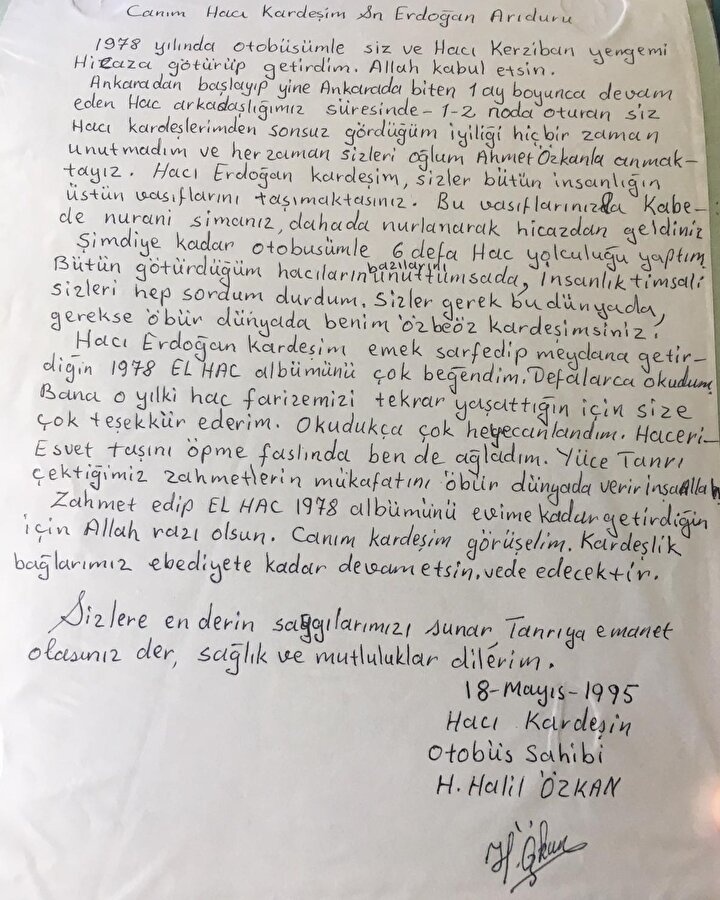 Canım Hacı Kardeşim Sn Erdoğan Arıduru
1978 yılında otobüsümle siz ve Hacı Kerziban yengemi
Hicaza götürüp getirdim. Allah kabul etsin.
Ankaradan başlayıp yine Ankarada biten 1 ay boyunca devam
eden Hac arkadaşlığımız süresinde - 1-2 noda oturan siz
Hacı kardeşlerimden sonsuz gördüğüm iyiliği hiçbir zaman
unutmadım ve her zaman sizleri oğlum Ahmet Özkanla anmak-
tayız. Hacı Erdoğan kardeşim, sizler bütün insanlığın
üstün vasıflarını taşımaktasınız. Bu vasıflarınızla Kabe-
de nurani simanız, dahada nurlanarak hicazdan geldiniz
Şimdiye kadar otobusümle 6 defa Hac yolculuğu yaptım
Bütün götürdüğüm hacıların bazılarını unuttumsada, İnsanlık timsali
sizleri hep sordum durdum. Sizler gerek bu dünyada,
gerekse öbür dünyada benim özbeöz kardeşimsiniz.
Hacı Erdoğan Kardeşim emek sarfedip meydana getir-
diğin 1978 EL HAC albümünü çok beğendim. Defalarca okudum
Bana o yılki hac farizemizi tekrar yaşattığın için size
çok teşekkür ederim. Okudukça çok heyecanlandım. Haceri-
Esvet taşını öpme faslında ben de ağladım. Yüce Tanrı
çektiğimiz zahmetlerin mükafatını öbür dünyada verir insaAllah
Zahmet edip EL HAC 1978 albümünü evime kadar getirdiğin
için Allah razı olsun. Canım kardeşim görüşelim. Kardeşlik
bağlarımız ebediyete kadar devam etsin. vede edecektir.
Sizlere en derin saygılarımızı sunar, Tanrıya emanet
olasınız der, sağlık ve mutluluklar dilerim.
18-Mayıs-1995
Hacı Kardeşin
Otobüs Sahibi
H. Halil ÖZKAN
H. Özkan